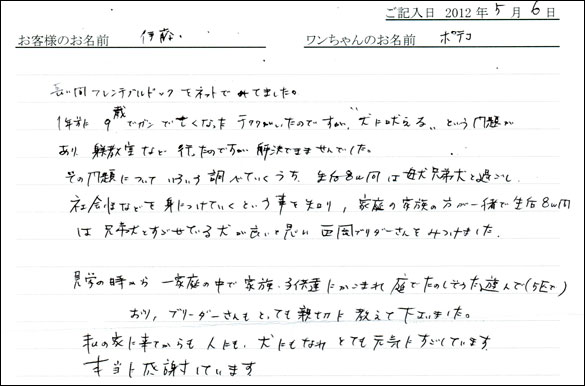 ご記入日 2012年5月6日
お客様のお名前 伊藤 ワンちゃんのお名前 ポテコ
長い間フレンチブルドックをネットでみてました。
1年前に9歳でガンで亡くなったラブラドールがいたのですが、"犬に吠える"という問題が
あり、躾教室など行ったのですが解決できませんでした。
その問題についていろいろ調べていくうち、生后8W間は母犬兄弟犬と過ごし
社会性などを身につけていくという事を知り、家庭の家族の方が一緒で生后8W間
は兄弟犬とすごせている犬が良いと思い西岡ブリーダーさんをみつけました。
見学の時から一家庭の中で家族・子供達にかこまれ庭でたのしそうに遊んで(5匹で)
おり、ブリーダーさんもとても親切に教えて下さいました。
私の家に来てからも人にも、犬にもなれとても元気にすごしています
本当に感謝しています